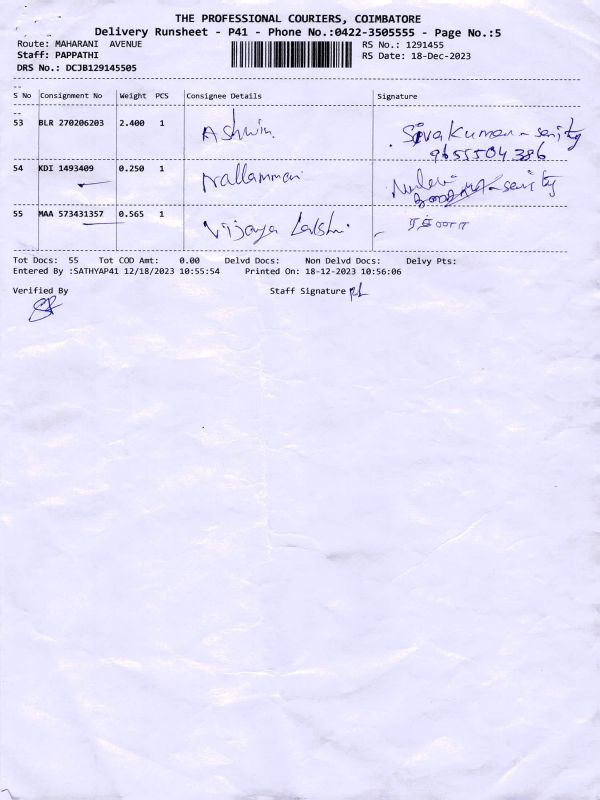 THE PROFESSIONAL COURIERS, COIMBATORE
Delivery Runsheet - P41 - Phone No.:0422-3505555 - Page No.:5
Route: MAHARANI AVENUE RS No.: 1291455
Staff: PAPPATHI RS Date: 18-Dec-2023
DRS No.: DCJB129145505
S No Consignment No Weight PCS Consignee Details Signature
53 BLR 270206203 2.400 1 Ashwin Sivakumar - serity
9655504386
54 KDI 1493409 0.250 1 Nallammai
55 MAA 573431357 0.565 1 Vijaya Lakshi
Tot Docs: 55 Tot COD Amt: 0.00 Delvd Docs: Non Delvd Docs: Delvy Pts:
Entered By :SATHYAP41 12/18/2023 10:55:54 Printed On: 18-12-2023 10:56:06
Verified By Staff Signature